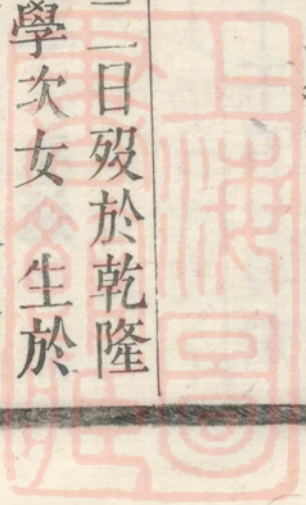 二日歿於乾隆
學次女 生於
上海圖
書館藏